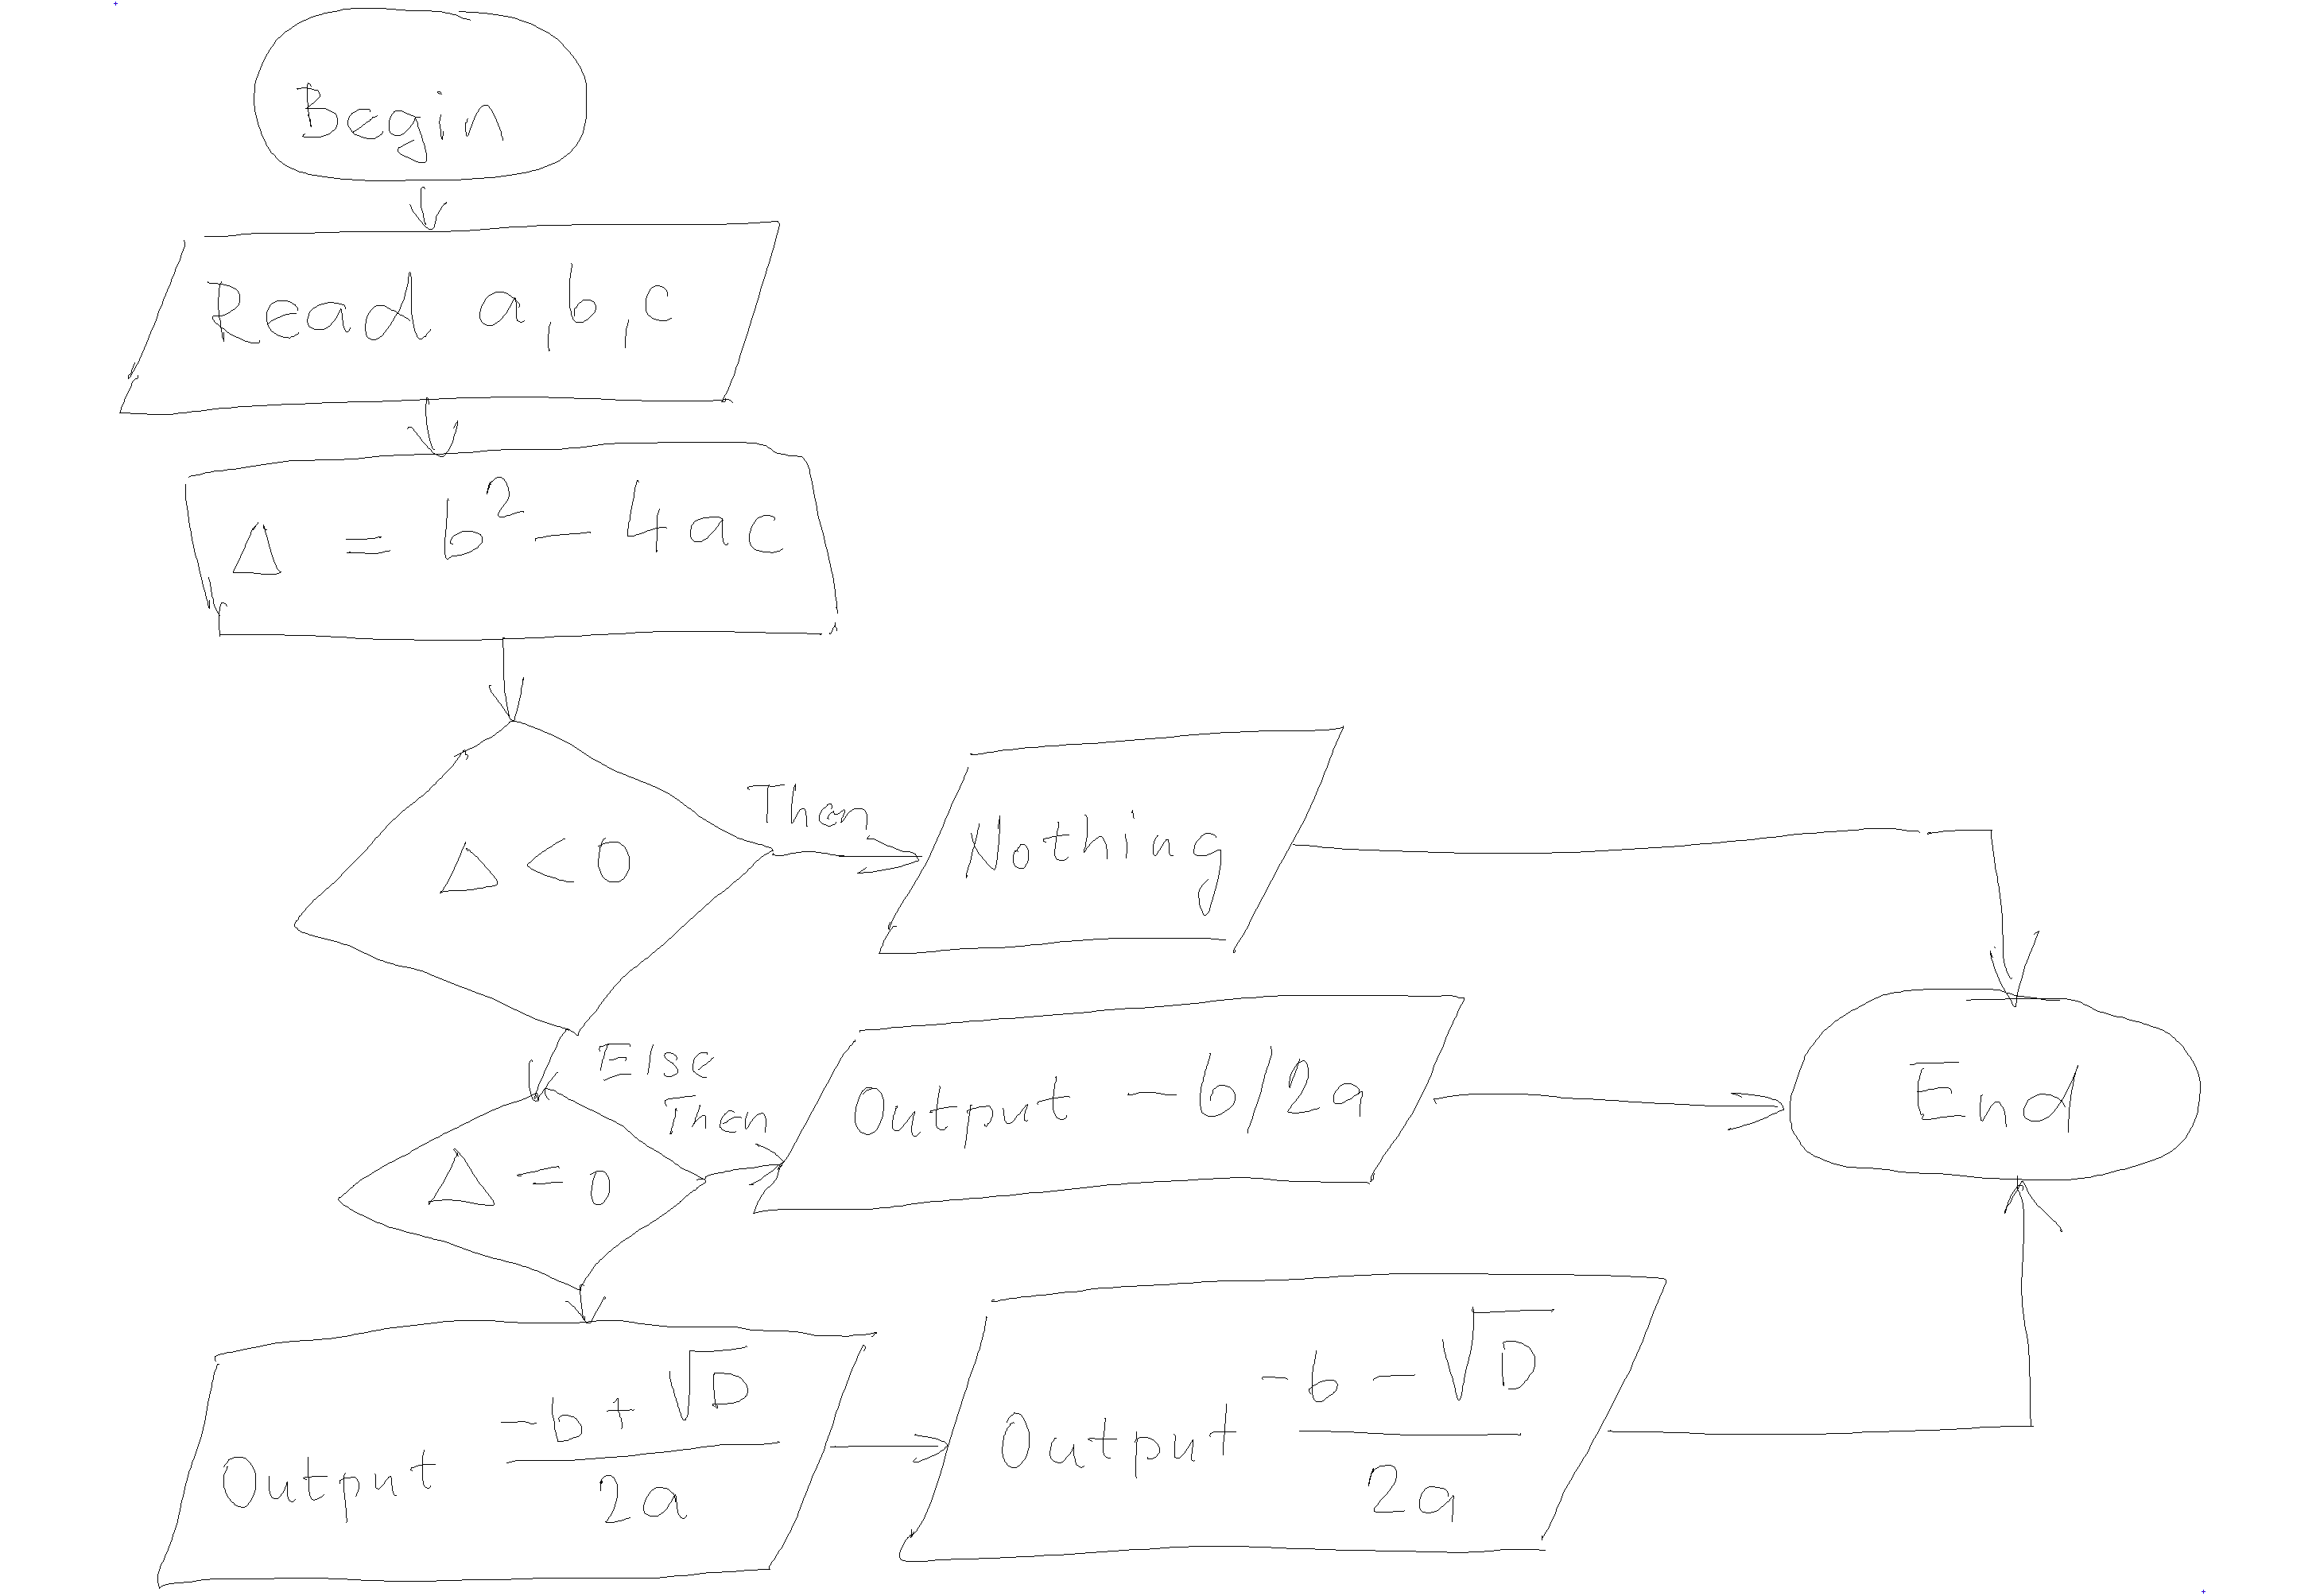 Begin
Read a, b, c
Δ = b² - 4ac
Δ < 0
Then
Nothing
Else
Then
Δ = 0
Output -b/2a
End
Output (-b + √D)/2a
Output (-b - √D)/2a